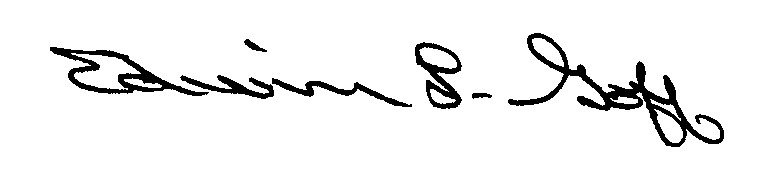 Edwin S. Goff